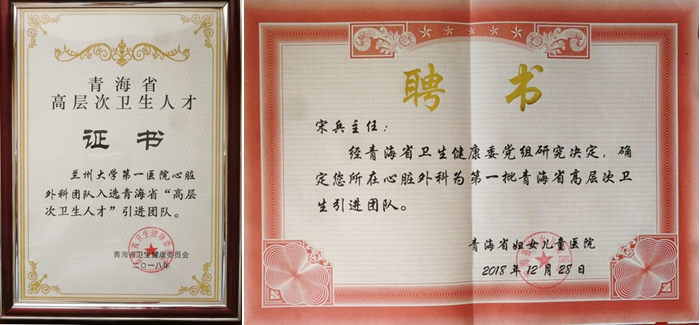 青海省
高层次卫生人才
证书
兰州大学第一医院心脏
外科团队入选青海省“高层
次卫生人才”引进团队。
青海省卫生健康委员会
二〇一八年
聘书
宋兵主任：
经青海省卫生健康委党组研究决定，确
定您所在心脏外科为第一批青海省高层次卫
生引进团队。
青海省妇女儿童医院
2018年12月28日